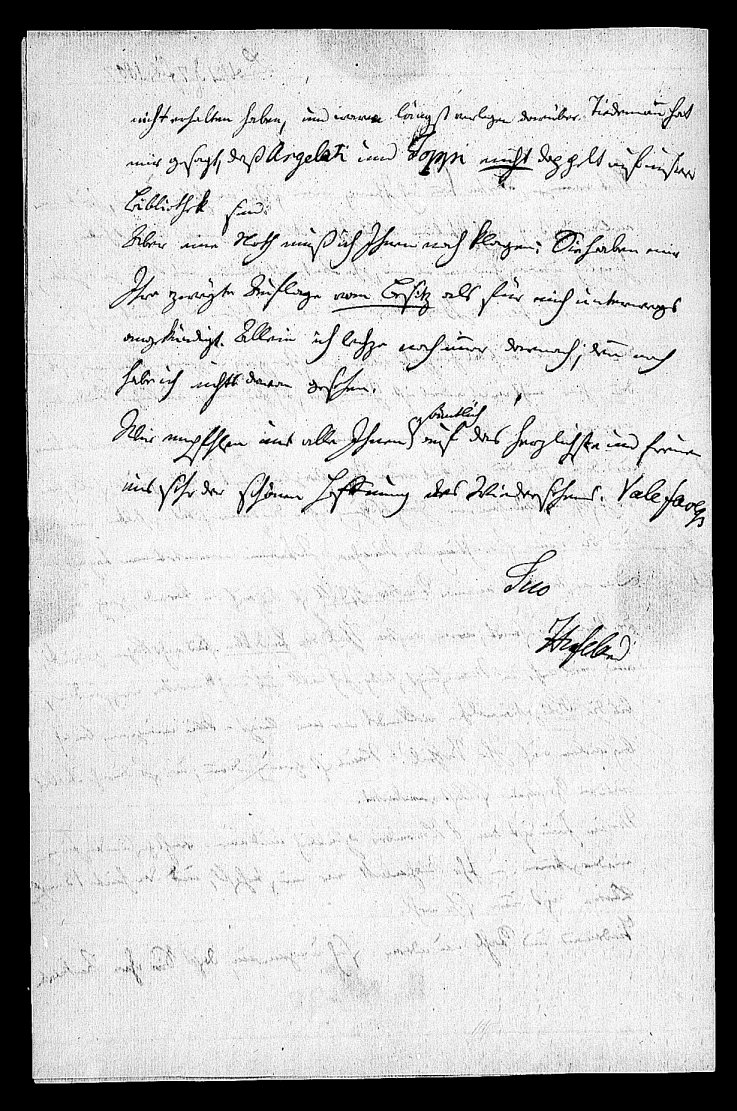 nicht erhalten haben, und waren längst verlegen darüber. Tiedemann hat
mir gesagt, daß Argelati und Toppi nicht doppelt auf unsrer
Bibliothek sind.
Aber eine Noth muß ich Ihnen noch klagen: Sie haben mir
Ihre zweyte Auflage vom Besitz als für mich unterwegs
angekündigt. Allein ich lechze noch immer darnach; denn noch
habe ich nichts davon gesehen.
Wir empfehlen uns alle Ihnen sämtlich auf das herzlichste und freuen
uns sehr der schönen Hoffnung des Wiedersehens. Vale faveq
Tuo
Hufeland